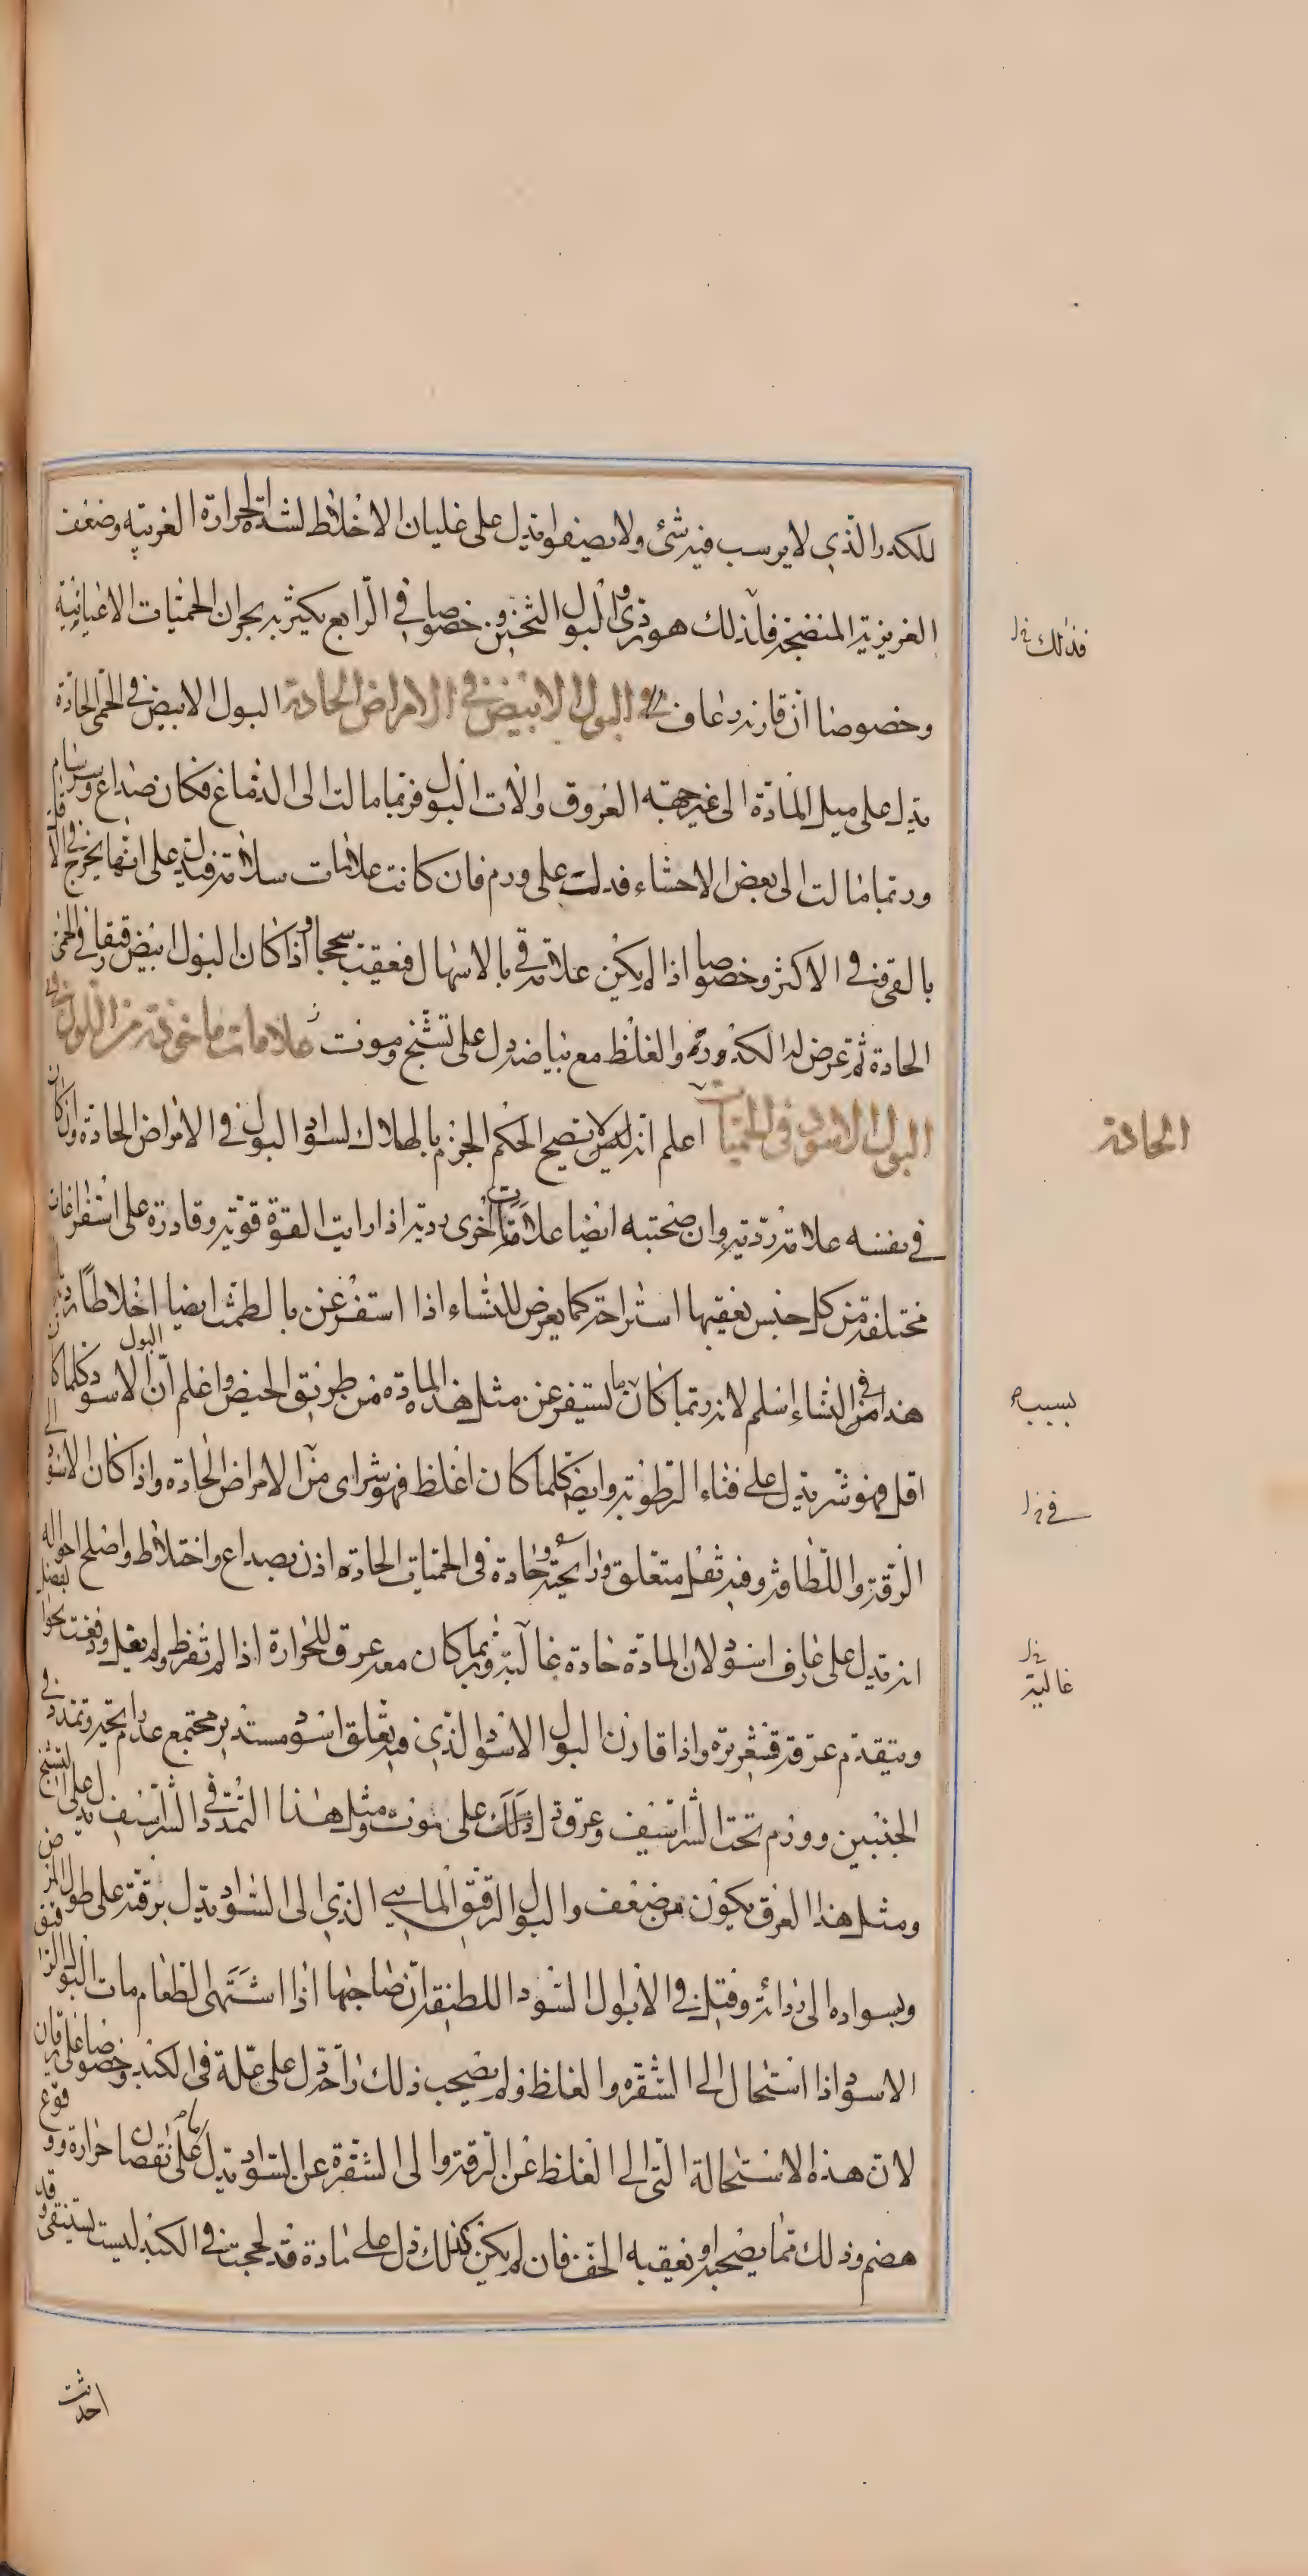 للكدر الذي لا يرسب فيه شئ ولا يصفوا تدل على غليان الاخلاط لشدة الحرارة الغريبة وضعف
الغريزية المنضجة فلذلك هو ردى والبول الثخين خصوصا في الرابع يكثر به بحران الحميات الاعيائية
فذلك
وخصوصا ان قارنه رعاف في البول الابيض في الامراض الحادة البول الابيض في الحمى الحادة
يدل على ميل المادة الى غير جهة العروق والات البول فربما مالت الى الدماغ فكان صداع وسرسام
وربما مالت الى بعض الاحشاء فدلت على ورم فان كانت علامات سلامة فيدل على انها يخرج
بالقى في الاكثر وخصوصا اذا لم يكن علامة قى بالاسهال فيعقب سحجا واذا كان البول ابيض رقيقا في الحمى
الحادة ثم عرض له الكدورة والغلظ مع بياضه دل على تشنج وموت علامات ماخوذة من اللون في
البول الاسود في الحميات اعلم انه ليس لا يصح الحكم الجزم بالهلاك لسواد البول في الامراض الحادة وان كان
الحادة
في نفسه علامة ردية وان صحبته ايضا علامات اخرى ردية اذا رايت القوة قوية وقادرة على استفراغات
مختلفة من كل جنس يعقبها استراحة كما يعرض للنساء اذا استفرغن بالطمث ايضا اخلاطا ردية
هذا من في النساء اسلم لانه ربما كان ما لستيفرغن مثل هذه المادة من طريق الحيض واعلم ان البول الاسود كلما كان
بسبب
اقل فهو شر يدل على فناء الرطوبة وايضا كلما كان اغلظ فهو شر اى من الامراض الحادة واذا كان الاسود الى
في
الرقة واللطافة وفيه ثفل متعلق ورائحته حادة في الحميات الحادة اذن بصداع واختلاط واصلح احواله
انه يدل على رعاف اسود لان المادة حادة غالية وربما كان معه عرق للحرارة اذا لم تفرط ولم يقل ودفعت
غالية
ويتقدم عرقه قشعريرة واذا قارن البول الاسود الذي فيه تعلق اسود مستدير مجتمع عدم الخير وتمدد في
الجنبين وورم تحت الشراسيف وعرق دل ذلك على موت ومثل هذا التمدد في الشراسيف يدل على التشنج
ومثل هذا العرق يكون من ضعف والبول الرقيق المايي الذي الى السواد يدل برقته على طول المرض
وبسواده الى رداءته وقيل في الابوال السود اللطيفة ان صاحبها اذا اشتهى الطعام مات البول الرقيق
الاسود اذا استحال الى الشقرة والغلظ ولم يصحب ذلك راحة دل على علة في الكبد وخصوصا على يرقان
لان هذه الاستحالة التى الى الغلظ عن الرقة والى الشقرة عن السواد يدل على نقصان حرارة ووقوع
هضم وذلك مما يصحبه او يعقبه الخف فان لم يكن كذلك دل على مادة قد لحجت في الكبد ليست تستنقى وقد
احدثت